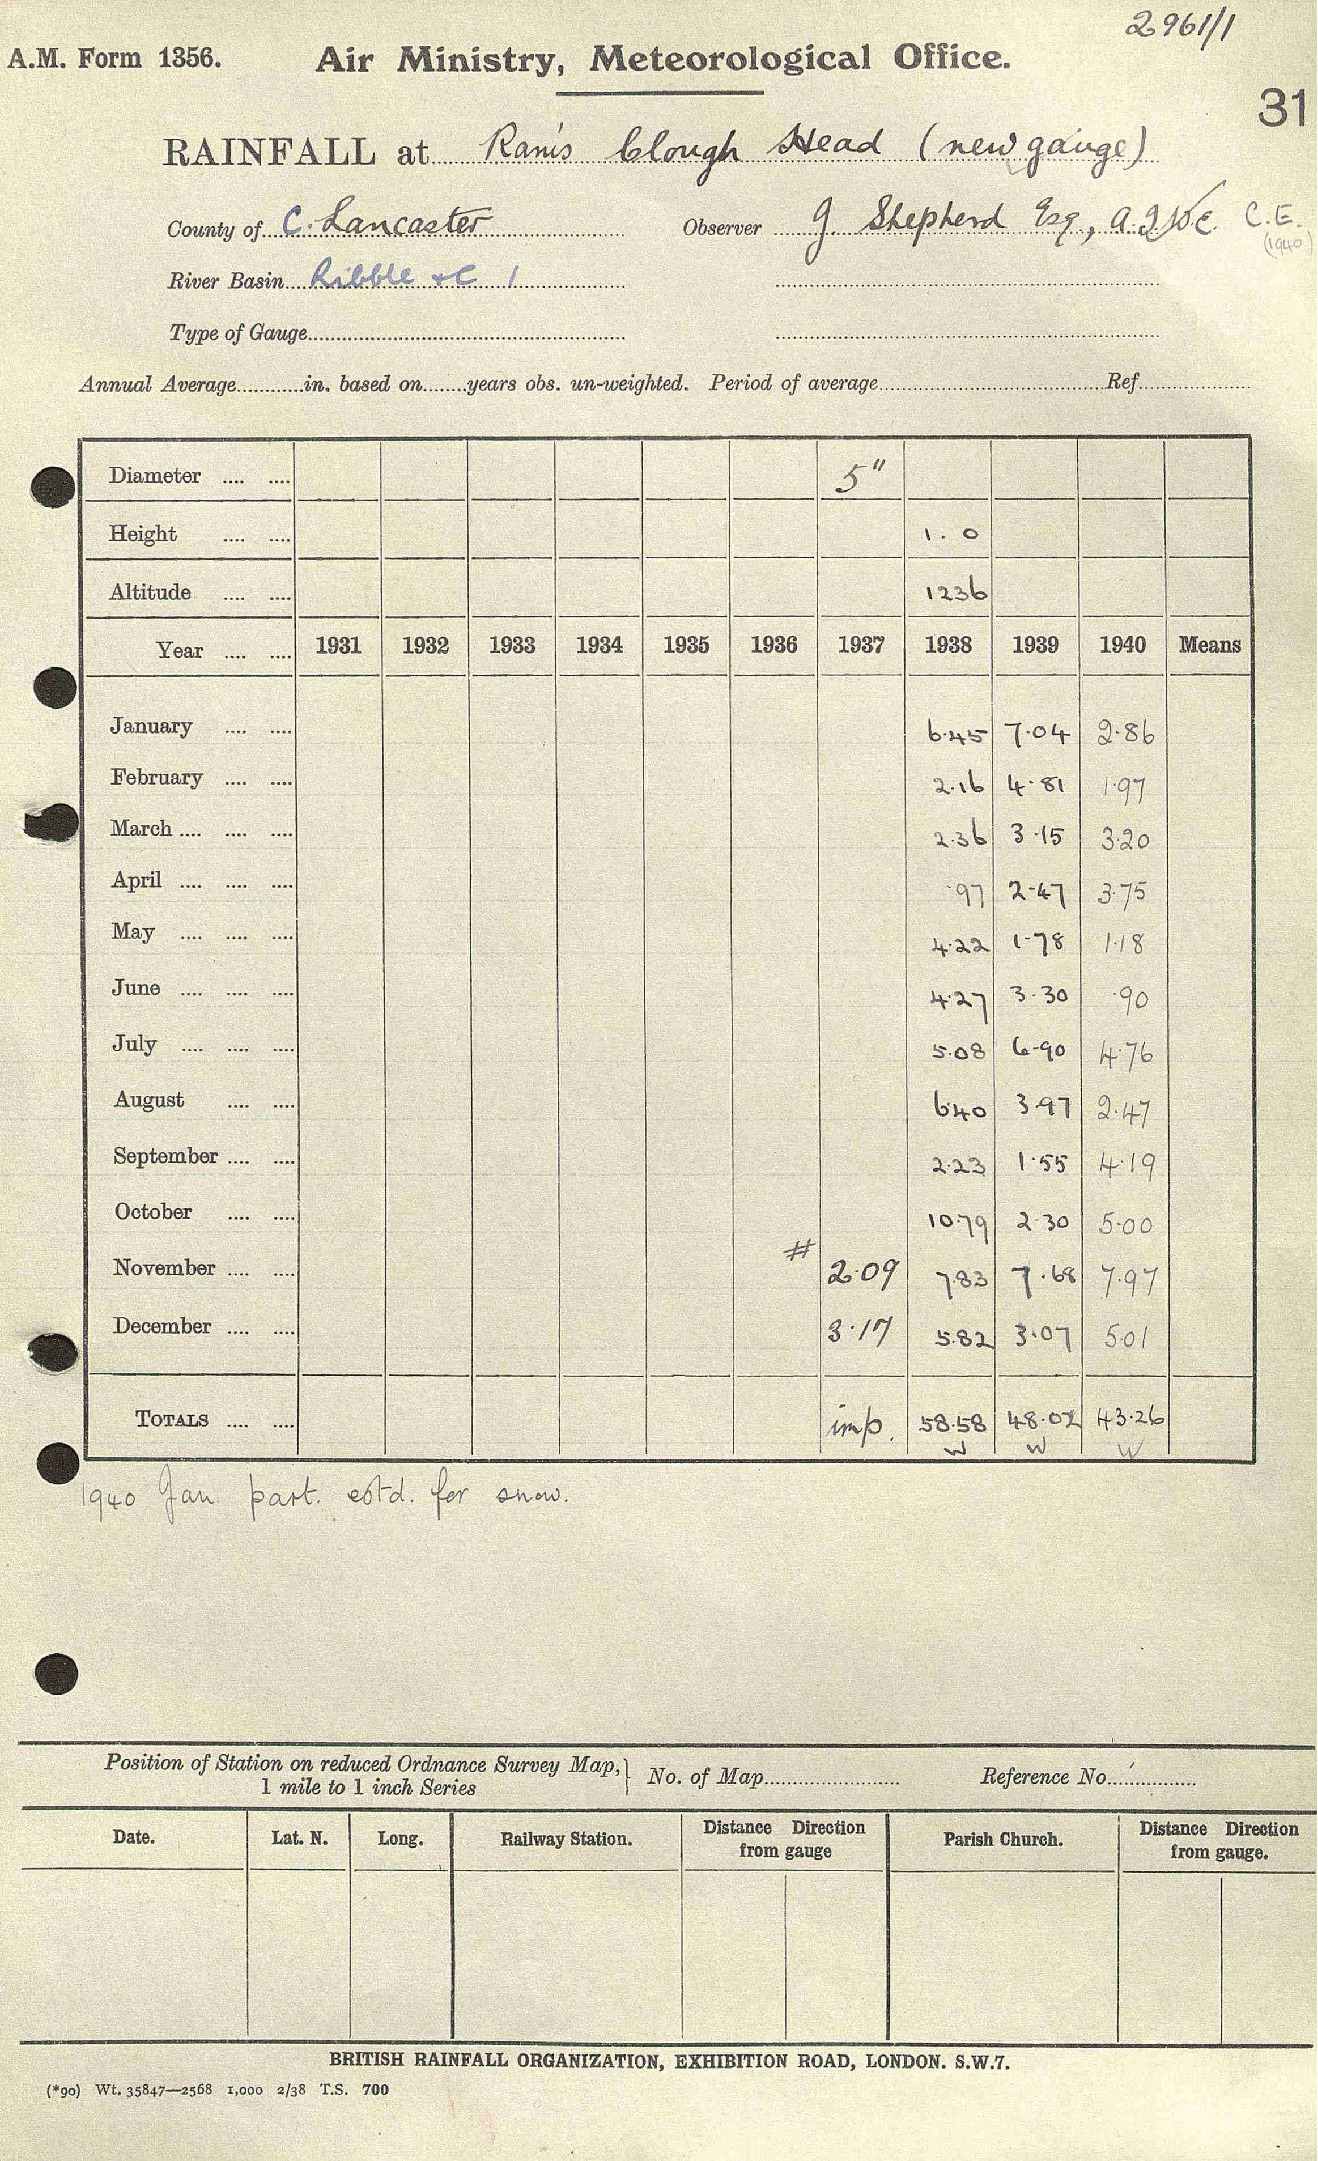 2961/1
A.M. Form 1356. Air Ministry, Meteorological Office.
31
RAINFALL at Ram's Clough Head (new gauge)
County of C. Lancaster Observer J. Shepherd Esq., C.E.
(1940)
River Basin Ribble &c 1
Type of Gauge
Annual Average in. based on years obs. un-weighted. Period of average Ref.
Diameter .... .... 5"
Height .... .... 1.0
Altitude .... .... 1236
Year .... .... 1931 1932 1933 1934 1935 1936 1937 1938 1939 1940 Means
January .... .... 6.45 7.04 2.86
February .... .... 2.16 4.81 1.97
March .... .... .... 2.36 3.15 3.20
April .... .... .... .97 2.47 3.75
May .... .... .... 4.22 1.78 1.18
June .... .... .... 4.27 3.30 .90
July .... .... .... 5.08 6.90 4.76
August .... .... 6.40 3.97 2.47
September .... .... 2.23 1.55 4.19
October .... .... 10.79 2.30 5.00
November .... .... # 2.09 7.83 7.68 7.97
December .... .... 3.17 5.82 3.07 5.01
TOTALS .... .... imp. 58.58 48.02 43.26
W W W
1940 Jan. part. estd. for snow.
Position of Station on reduced Ordnance Survey Map, } No. of Map Reference No.
1 mile to 1 inch Series
Date. Lat. N. Long. Railway Station. Distance Direction from gauge Parish Church. Distance Direction from gauge.
BRITISH RAINFALL ORGANIZATION, EXHIBITION ROAD, LONDON. S.W.7.
(*90) Wt. 35847—2568 1,000 2/38 T.S. 700